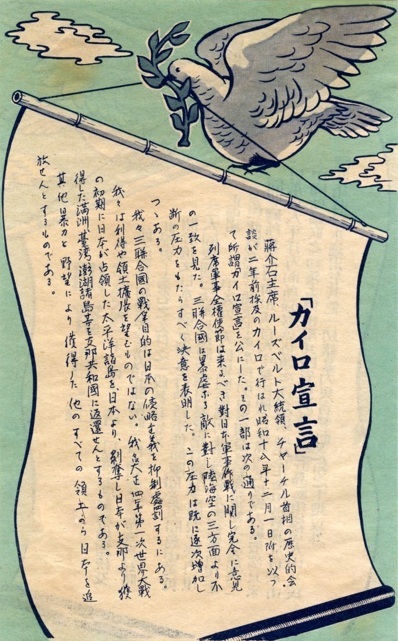 「カイロ宣言」
蔣介石主席、ルーズベルト大統領、チャーチル首相の歴史的会
談が二年前埃及のカイロで行はれ昭和十八年十二月一日附を以つ
て所謂カイロ宣言を公にした。その一部は次の通りである。
列席軍事全權使節は来るべき對日本軍事作戦に関し完全に意見
の一致を見た。三聯合國は暴虐なる敵に対し陸海空の三方面より不
断の圧力をもたらすべく決意を表明した。この圧力は既に逐次増加し
つゝある。
我々三聯合國の戦争目的は日本の侵略主義を抑制處罰するにある。
我々は利得や領土擴張を望むものではない。我々は大正四年第一次世界大戦
の初期に日本が占領した太平洋諸島を日本より剝奪し日本が支那より獲
得した満洲、臺湾、澎湖諸島等を支那共和國に返還せんとするものである。
其他暴力と野望により獲得した他のすべての領土から日本を追
放せんとするものである。